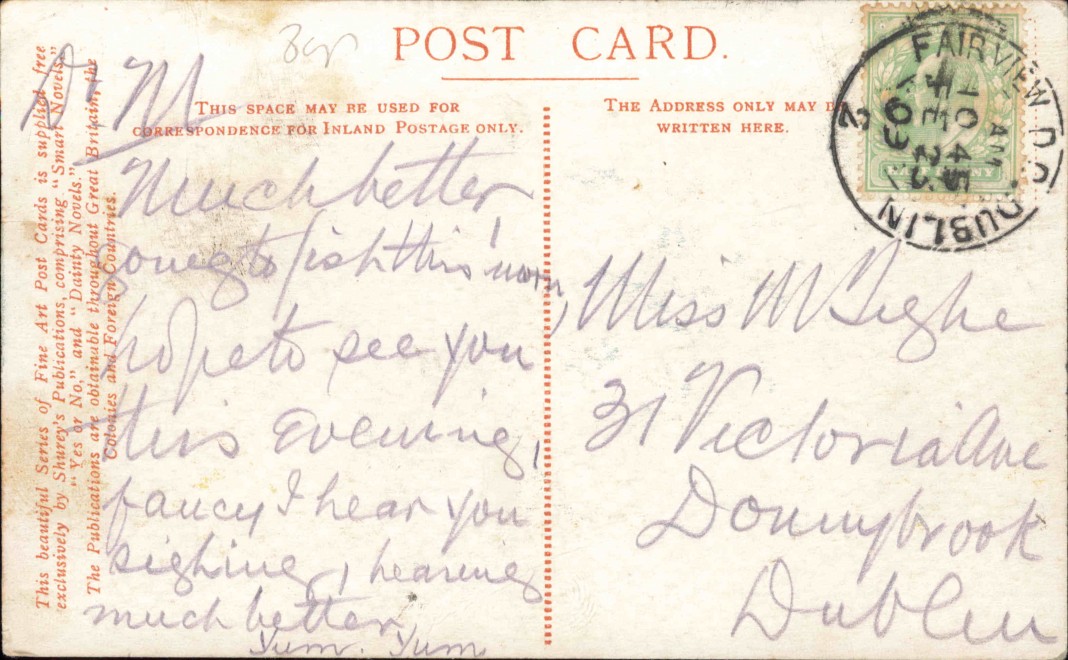 POST CARD.
THIS SPACE MAY BE USED FOR
CORRESPONDENCE FOR INLAND POSTAGE ONLY.
THE ADDRESS ONLY MAY
WRITTEN HERE.
This beautiful Series of Fine Art Post Cards is supplied free
exclusively by Shurey's Publications, comprising "Smart Novels,"
"Yes or No," and "Dainty Novels."
The Publications are obtainable throughout Great Britain, the
Colonies and Foreign Countries.
FAIRVIEW D.O.
DUBLIN
10 45 AM
FE 2
09
HALFPENNY
D. M
Much better
going to fish this morn,
hope to see you
this evening,
fancy I hear you
sighing, hearing
much better
Yum. Yum
Miss M
31 Victoria Ave
Donnybrook
Dublin